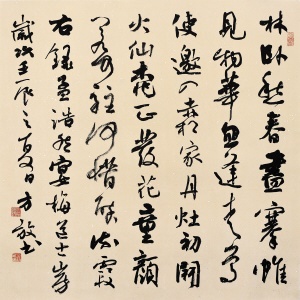 林臥愁春盡搴帷
見物華忽逢青鳥
使邀入赤松家丹灶初開
火仙桃正發花童顏
若可駐何惜醉流霞
右錄孟浩然宴梅道士房
歲次壬辰之夏日方書